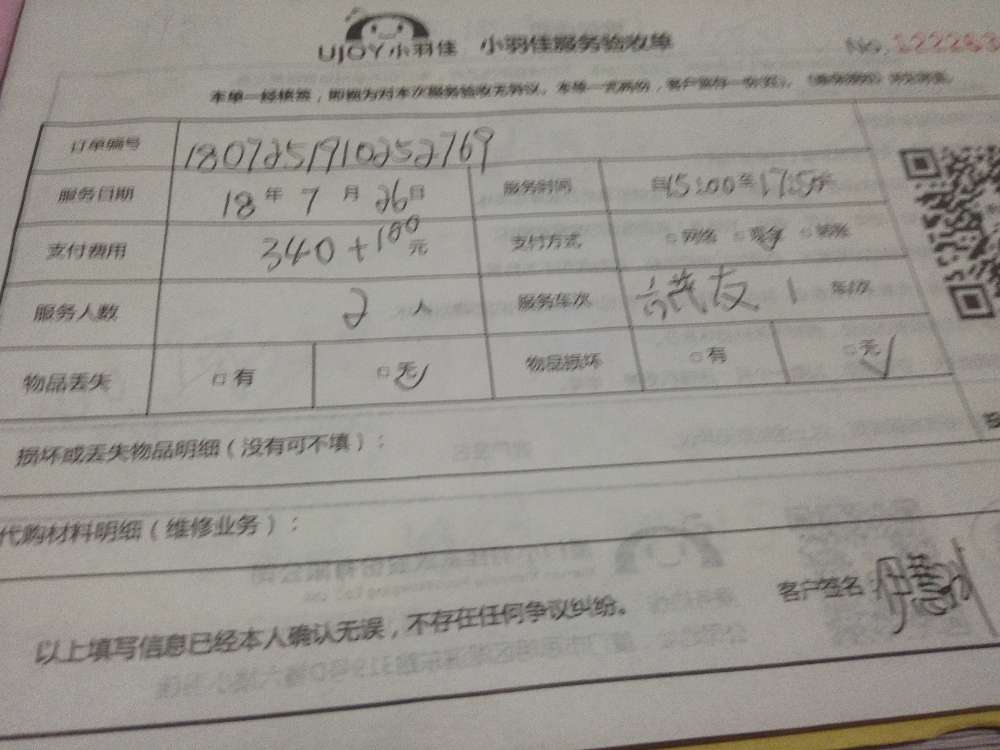 UJOY小羽佳 小羽佳服务验收单 No.
本单一经核签，即视为对本次服务验收无异议。本单一式两份，客户留存一份
订单编号 1807251910252769
服务日期 18年7月26日 服务时间 15:00至17:50
支付费用 340+100元 支付方式 □网络 □现金 □转账
服务人数 2人 服务车次 1 车/次
物品丢失 □有 □无✓ 物品损坏 □有 □无✓
损坏或丢失物品明细（没有可不填）：
代购材料明细（维修业务）：
客户签名：
以上填写信息已经本人确认无误，不存在任何争议纠纷。